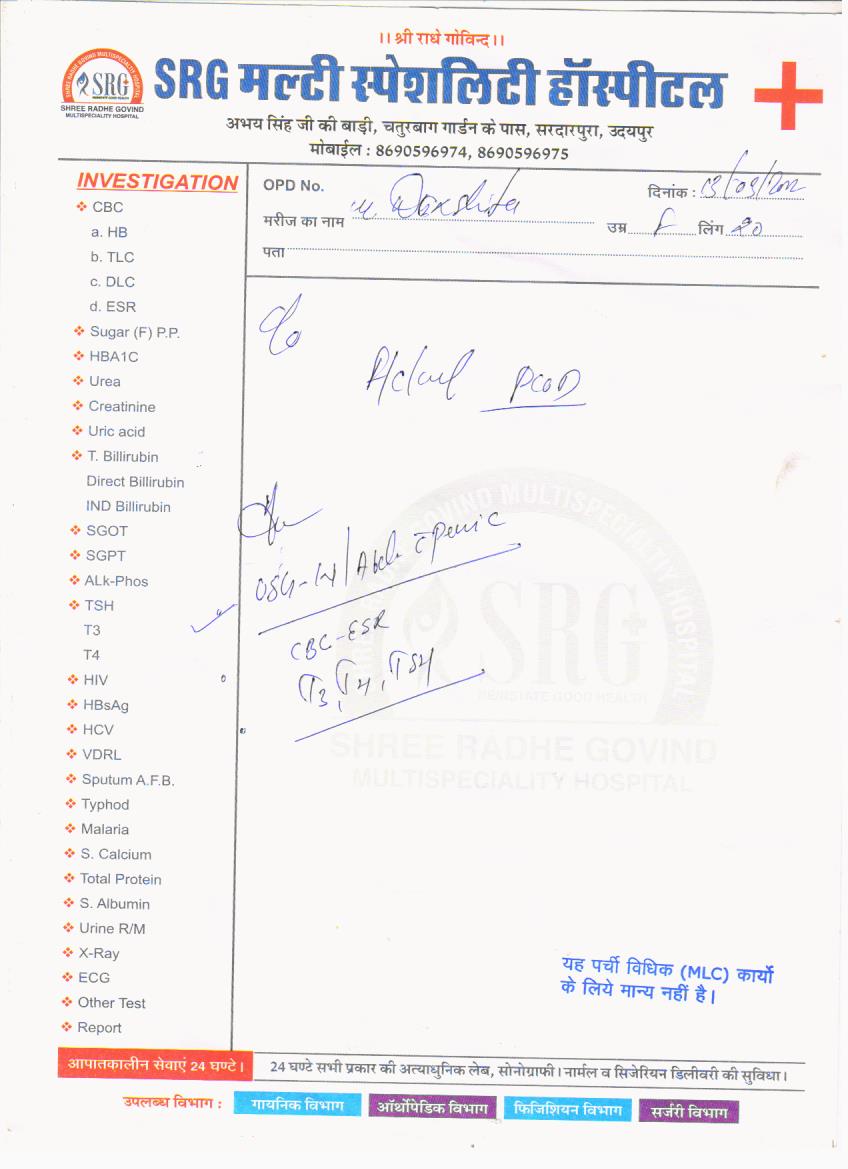 ।। श्री राधे गोविन्द।।
SHREE RADHE GOVIND MULTISPECIALITY HOSPITAL
SRG
REINSTATE GOOD HEALTH
SHREE RADHE GOVIND
MULTISPECIALITY HOSPITAL
SRG मल्टी स्पेशलिटी हॉस्पीटल
अभय सिंह जी की बाड़ी, चतुरबाग गार्डन के पास, सरदारपुरा, उदयपुर
मोबाईल : 8690596974, 8690596975
INVESTIGATION
CBC
a. HB
b. TLC
c. DLC
d. ESR
Sugar (F) P.P.
HBA1C
Urea
Creatinine
Uric acid
T. Billirubin
Direct Billirubin
IND Billirubin
SGOT
SGPT
ALk-Phos
TSH
T3
T4
HIV
HBsAg
HCV
VDRL
Sputum A.F.B.
Typhod
Malaria
S. Calcium
Total Protein
S. Albumin
Urine R/M
X-Ray
ECG
Other Test
Report
OPD No.
दिनांक :
मरीज का नाम Dakshita उम्र F लिंग 20
पता
c/o
PCOD
CBC-ESR
T3, T4, TSH
GOVIND MULTISPECIALITY HOSPITAL
SRG
REINSTATE GOOD HEALTH
SHREE RADHE GOVIND
MULTISPECIALITY HOSPITAL
यह पर्ची विधिक (MLC) कार्यो
के लिये मान्य नहीं है।
आपातकालीन सेवाएं 24 घण्टे।
24 घण्टे सभी प्रकार की अत्याधुनिक लेब, सोनोग्राफी। नार्मल व सिजेरियन डिलीवरी की सुविधा।
उपलब्ध विभाग : गायनिक विभाग ऑर्थोपेडिक विभाग फिजिशियन विभाग सर्जरी विभाग